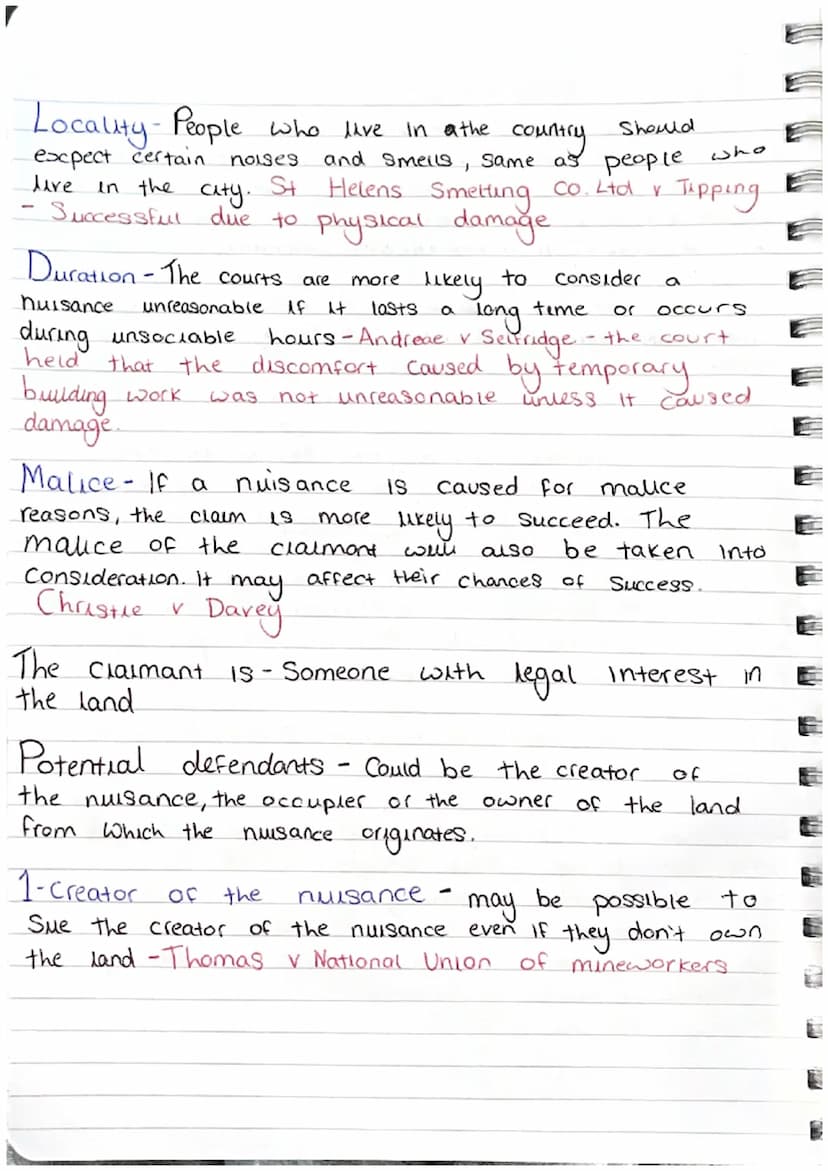 Locality - People who live in athe country should
excpect certain noises and smells, same as people who
live in the city. St Helens Smelting Co. Ltd v Tipping
- Successful due to physical damage
Duration - The courts are more likely to consider a
nuisance unreasonable if it lasts a long time or occurs
during unsociable hours - Andreae v Selfridge - the court
held that the discomfort caused by temporary
building work was not unreasonable unless it caused
damage.
Malice - If a nuisance is caused for malice
reasons, the claim is more likely to succeed. The
malice of the claimant will also be taken into
consideration. It may affect their chances of success.
Christie v Davey
The claimant is - Someone with legal interest in
the land
Potential defendants - Could be the creator of
the nuisance, the occupier or the owner of the land
from which the nuisance originates.
1 - Creator of the nuisance - may be possible to
sue the creator of the nuisance even if they don't own
the land - Thomas v National Union of mineworkers